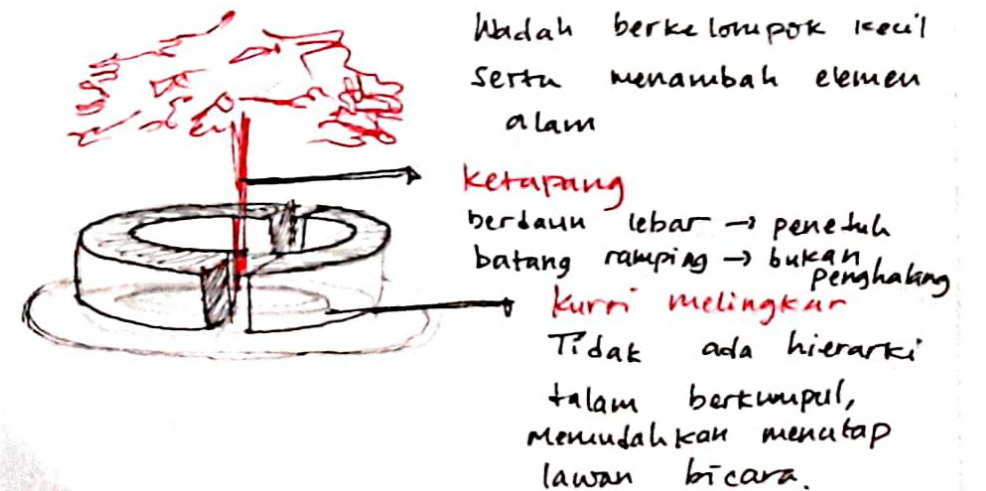 Wadah berkelompok kecil
serta menambah elemen
alam
Ketapang
berdaun lebar → peneduh
batang ramping → bukan
penghalang
Kursi melingkar
Tidak ada hierarki
dalam berkumpul,
memudahkan menatap
lawan bicara.